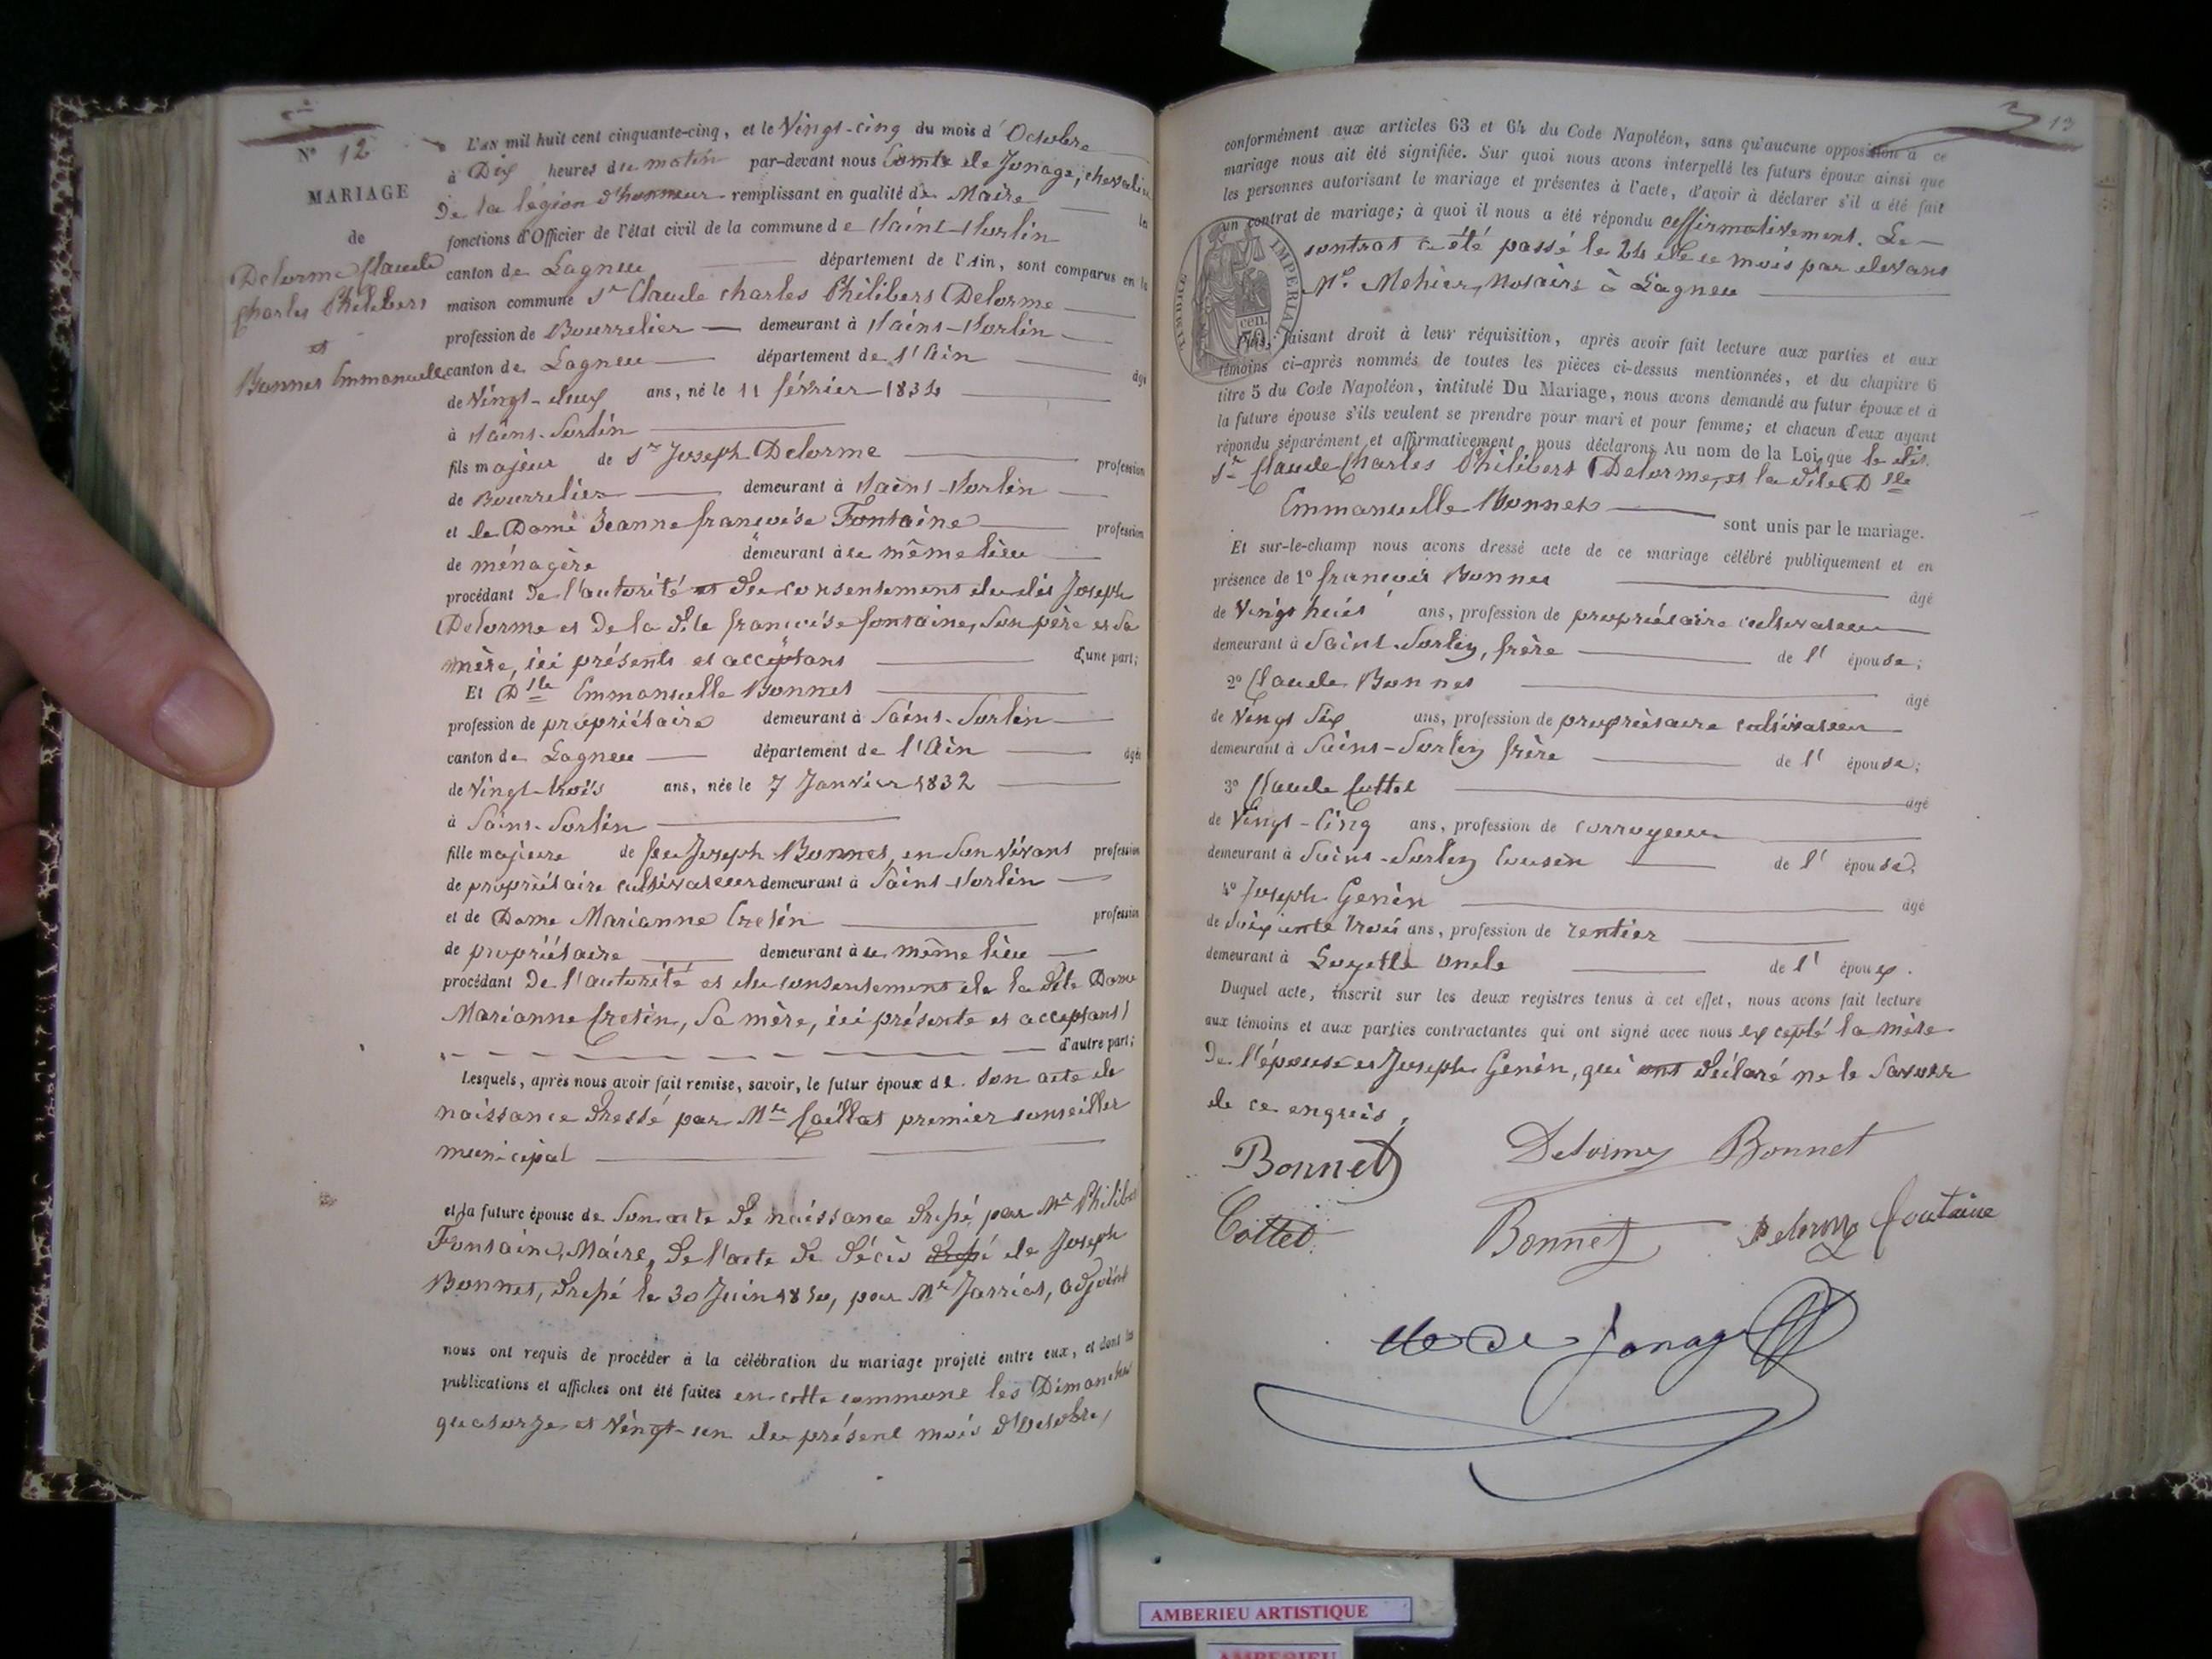 Nº 12
MARIAGE
de
Delorme Claude
Charles Philibert
et
Bonnet Emmanuelle
L'AN mil huit cent cinquante-cinq, et le Vingt-cinq du mois d'Octobre
à Dix heures du matin par-devant nous Comte de Jonage, chevalier
De la légion d'honneur remplissant en qualité de Maire les
fonctions d'Officier de l'état civil de la commune de Saint-Sorlin
canton de Lagneu département de l'Ain, sont comparus en la
maison commune Sr Claude Charles Philibert Delorme
profession de Bourrelier demeurant à Saint-Sorlin
canton de Lagneu département de l'Ain âgé
de Vingt-deux ans, né le 11 février 1834
à Saint-Sorlin
fils majeur de Sr Joseph Delorme profession
de Bourrelier demeurant à Saint-Sorlin
et de Dame Jeanne françoise Fontaine profession
de ménagère demeurant à ce même lieu
procédant De l'autorité et du consentement du dit Joseph
Delorme et De la dite françoise fontaine, Son père et Sa
mère, ici présents et acceptant d'une part;
Et Dlle Emmanuelle Bonnet
profession de propriétaire demeurant à Saint-Sorlin
canton de Lagneu département de l'Ain âgée
de Vingt-trois ans, née le 7 Janvier 1832
à Saint-Sorlin
fille majeure de feu Joseph Bonnet, en Son vivant profession
de propriétaire cultivateur demeurant à Saint-Sorlin
et de Dame Marianne Cretin profession
de propriétaire demeurant à ce même lieu
procédant De l'autorité et du consentement de la dite Dame
Marianne Cretin, Sa mère, ici présente et acceptant
d'autre part;
Lesquels, après nous avoir fait remise, savoir, le futur époux de Son acte de
naissance dressé par Mre Caillat premier conseiller
municipal
et la future épouse de Son acte De naissance Dressé par Mr Philibert
Fontaine, Maire, De l'acte De Décès dressé de Joseph
Bonnet, Dressé le 30 Juin 1850, par Mr Jarriat, adjoint
nous ont requis de procéder à la célébration du mariage projeté entre eux, et dont les
publications et affiches ont été faites en cette commune les Dimanches
quatorze et Vingt-un du présent mois d'Octobre,
13
conformément aux articles 63 et 64 du Code Napoléon, sans qu'aucune opposition à ce
mariage nous ait été signifiée. Sur quoi nous avons interpellé les futurs époux ainsi que
les personnes autorisant le mariage et présentes à l'acte, d'avoir à déclarer s'il a été fait
un contrat de mariage; à quoi il nous a été répondu affirmativement. Le
contrat a été passé le 24 de ce mois par devant
Me Mehier, Notaire à Lagneu
TIMBRE IMPERIAL
cen.
Puis, faisant droit à leur réquisition, après avoir fait lecture aux parties et aux
témoins ci-après nommés de toutes les pièces ci-dessus mentionnées, et du chapitre 6
titre 5 du Code Napoléon, intitulé Du Mariage, nous avons demandé au futur époux et à
la future épouse s'ils veulent se prendre pour mari et pour femme; et chacun d'eux ayant
répondu séparément et affirmativement, nous déclarons Au nom de la Loi que le dit
Sr Claude Charles Philibert Delorme, et la dite Dlle
Emmanuelle Bonnet sont unis par le mariage.
Et sur-le-champ nous avons dressé acte de ce mariage célébré publiquement et en
présence de 1º françois Bonnet âgé
de Vingt huit ans, profession de propriétaire cultivateur
demeurant à Saint-Sorlin, frère de l'épouse;
2º Claude Bonnet âgé
de Vingt Six ans, profession de propriétaire cultivateur
demeurant à Saint-Sorlin frère de l'épouse;
3º Claude Cottet âgé
de Vingt-Cinq ans, profession de corroyeur
demeurant à Saint-Sorlin Cousin de l'épouse;
4º Joseph Genin âgé
de Soixante trois ans, profession de rentier
demeurant à oncle de l'époux.
Duquel acte, inscrit sur les deux registres tenus à cet effet, nous avons fait lecture
aux témoins et aux parties contractantes qui ont signé avec nous excepté la mère
De l'épouse et Joseph Genin, qui ont Déclaré ne le Savoir
de ce enquis,
Bonnet Delorme Bonnet
Cottet Bonnet Delorme fontaine
de Jonage
AMBERIEU ARTISTIQUE
AMBERIEU